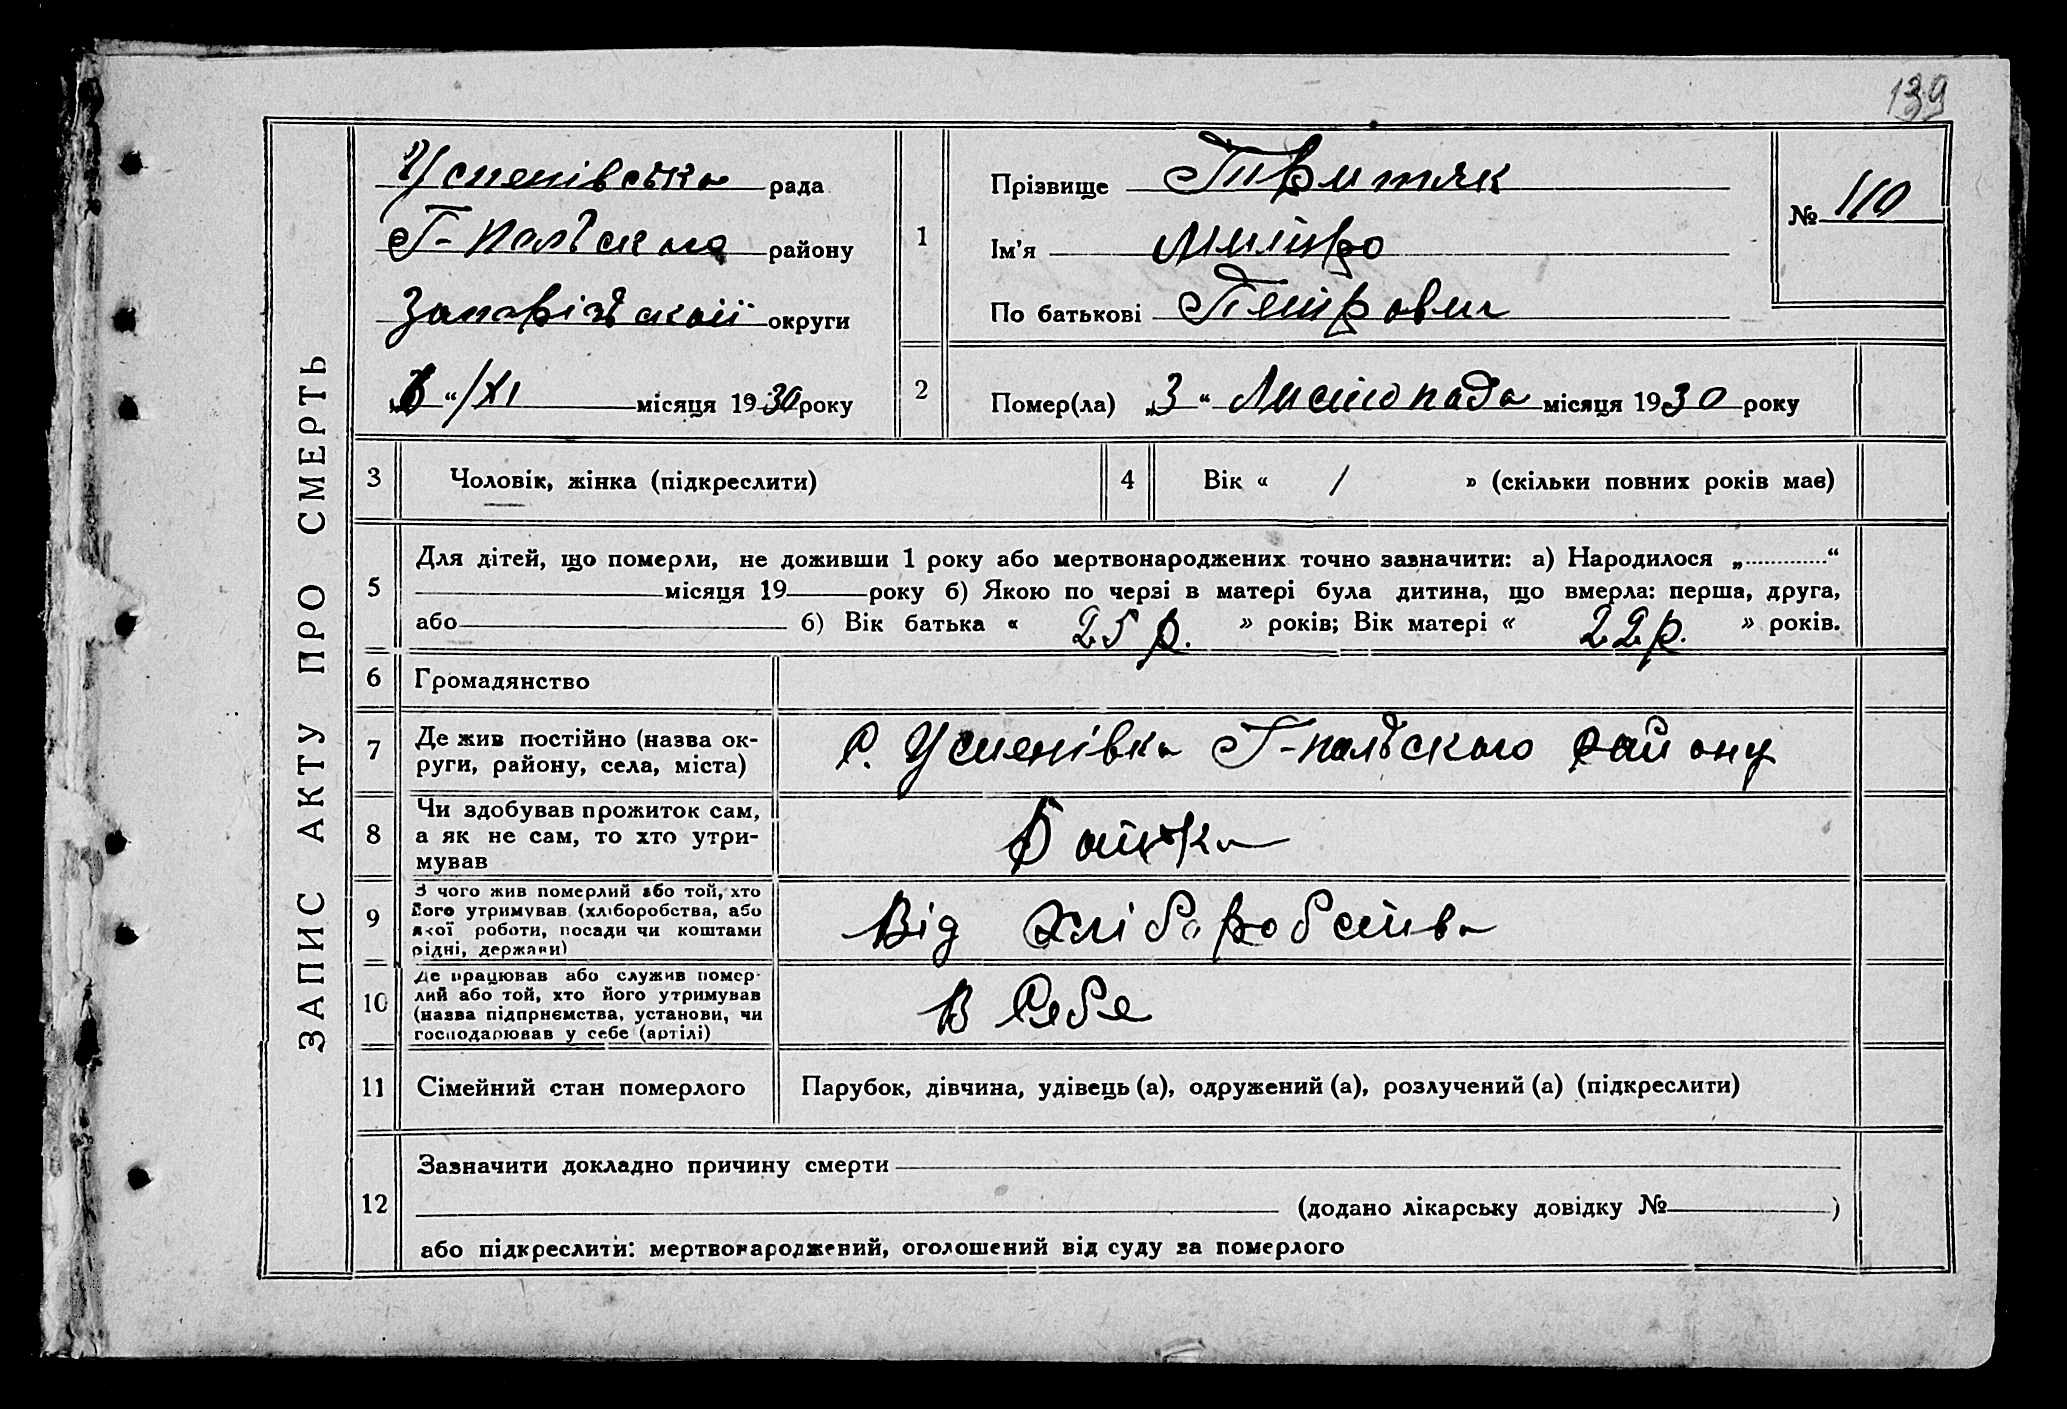 139
ЗАПИС АКТУ ПРО СМЕРТЬ
Успенівська рада
Г-Польского району
Запорізькоїі округи
„6“/XI місяця 1930 року
1
Прізвище Притяк
Ім'я Дмитро
По батькові Петрович
№ 110
2
Помер(ла) „3“ Листопада місяця 1930 року
3
Чоловік, жінка (підкреслити)
4
Вік « 1 » (скільки повних років має)
5
Для дітей, що померли, не доживши 1 року або мертвонароджених точно зазначити: а) Народилося „............“
місяця 19 року б) Якою по черзі в матері була дитина, що вмерла: перша, друга,
або б) Вік батька « 25 р. » років; Вік матері « 22 р. » років.
6
Громадянство
7
Де жив постійно (назва ок-
руги, району, села, міста)
С. Успенівка Г-польского району
8
Чи здобував прожиток сам,
а як не сам, то хто утри-
мував
Батько
9
З чого жив померлий або той, хто
його утримував (хліборобства, або
якої роботи, посади чи коштами
рідні, держави)
Від Хліборобства
10
Де працював або служив помер-
лий або той, хто його утримував
(назва підприємства, установи, чи
господарював у себе (артілі)
В Себе
11
Сімейний стан померлого
Парубок, дівчина, удівець (а), одружений (а), розлучений (а) (підкреслити)
12
Зазначити докладно причину смерти
(додано лікарську довідку № )
або підкреслити: мертвонароджений, оголошений від суду за померлого